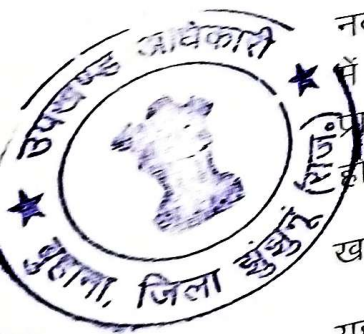 उपखण्ड अधिकारी
बुहाना, जिला झुंझुनूं (राज.)
में
ख